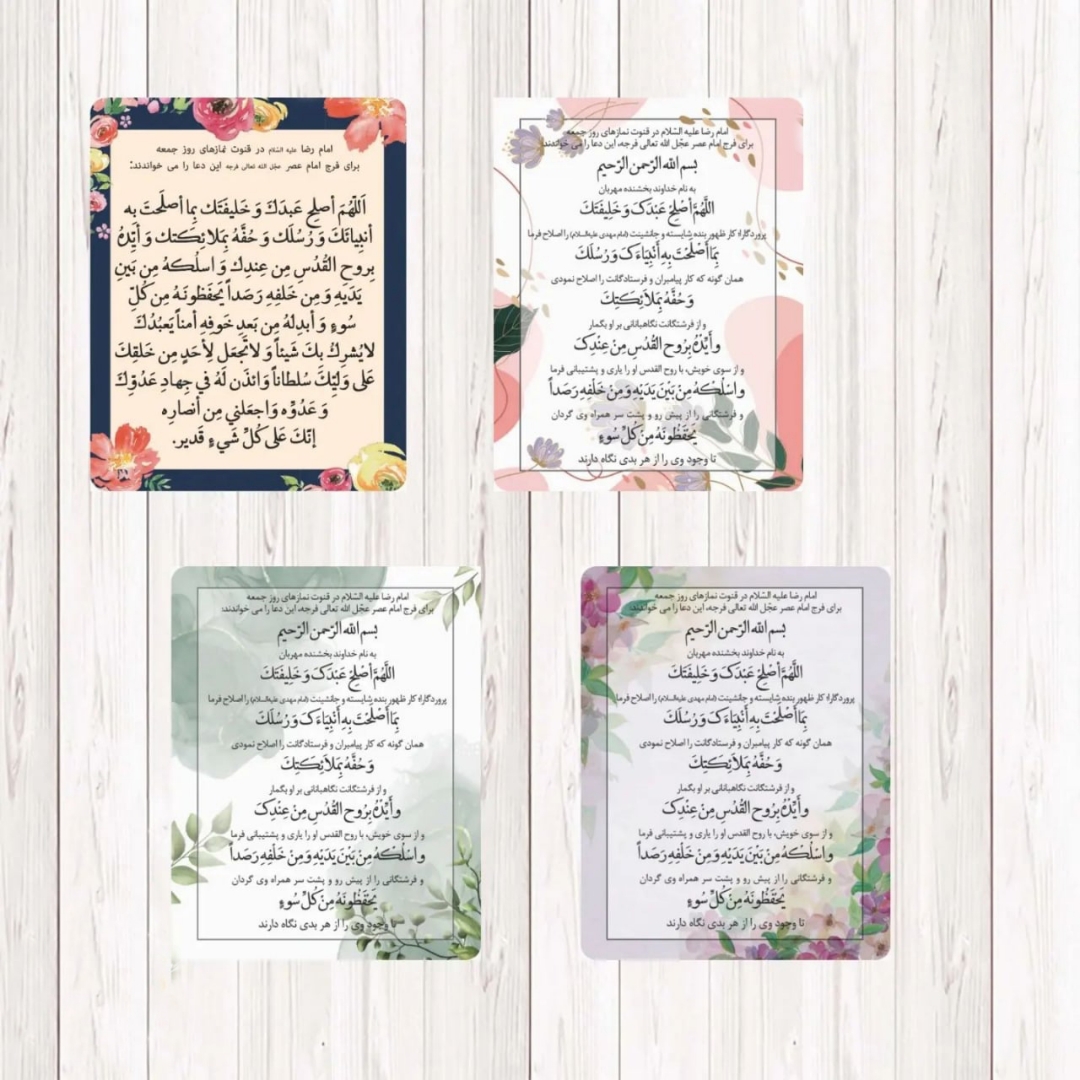 امام رضا علیه السّلام در قنوت نمازهای روز جمعه
برای فرج امام عصر عجّل الله تعالی فرجه این دعا را می خواندند:
اَللّهُمَ أصلِح عَبدَكَ وَ خَليفَتَك بِما أصلَحتَ بِه
أنبِيائَكَ وَ رُسُلَك وَ حُفَّهُ بِمَلائِكَتك وَ أيِّدهُ
بِروحِ القُدُسِ مِن عِندِك وَ اسلُكهُ مِن بَينِ
يَدَيهِ وَ مِن خَلفِهِ رَصَداً يَحفَظونَهُ مِن كُلِّ
سُوءٍ وَ أبدِلهُ مِن بَعدِ خَوفِهِ أمناً يَعبُدُكَ
لايُشرِكُ بِكَ شَيئاً وَ لاتَجعَل لِأحَدٍ مِن خَلقِكَ
عَلى وَلِيِّكَ سُلطاناً وَائذَن لَهُ في جِهادِ عَدُوِّكَ
وَ عَدُوِّه وَاجعَلني مِن أنصارِه
إنَّكَ عَلى كُلِّ شَيءٍ قَدير.
امام رضا علیه السّلام در قنوت نمازهای روز جمعه
برای فرج امام عصر عجّل الله تعالی فرجه، این دعا را می خواندند:
بسم الله الرّحمن الرّحیم
به نام خداوند بخشنده مهربان
اللَّهُمَّ أَصْلِحْ عَبْدَکَ وَ خَلِیفَتَکَ
پروردگارا؛ کار ظهور بنده شایسته و جانشینت (امام مهدی علیه‌السلام) را اصلاح فرما
بِمَا أَصْلَحْتَ بِهِ أَنْبِیَاءَکَ وَ رُسُلَکَ
همان گونه که کار پیامبران و فرستادگانت را اصلاح نمودی
وَ حُفَّهُ بِمَلَائِکَتِکَ
و از فرشتگانت نگاهبانانی بر او بگمار
و أَیِّدْهُ بِرُوحِ الْقُدُسِ مِنْ عِنْدِکَ
و از سوی خویش، با روح القدس او را یاری و پشتیبانی فرما
و اسْلُکْهُ مِنْ بَیْنِ یَدَیْهِ وَ مِنْ خَلْفِهِ رَصَداً
و فرشتگانی را از پیش رو و پشت سر همراه وی گردان
یَحْفَظُونَهُ مِنْ کُلِّ سُوءٍ
تا وجود وی را از هر بدی نگاه دارند
امام رضا علیه السّلام در قنوت نمازهای روز جمعه
برای فرج امام عصر عجّل الله تعالی فرجه، این دعا را می خواندند:
بسم الله الرّحمن الرّحیم
به نام خداوند بخشنده مهربان
اللَّهُمَّ أَصْلِحْ عَبْدَکَ وَ خَلِیفَتَکَ
پروردگارا؛ کار ظهور بنده شایسته و جانشینت (امام مهدی علیه‌السلام) را اصلاح فرما
بِمَا أَصْلَحْتَ بِهِ أَنْبِیَاءَکَ وَ رُسُلَکَ
همان گونه که کار پیامبران و فرستادگانت را اصلاح نمودی
وَ حُفَّهُ بِمَلَائِکَتِکَ
و از فرشتگانت نگاهبانانی بر او بگمار
و أَیِّدْهُ بِرُوحِ الْقُدُسِ مِنْ عِنْدِکَ
و از سوی خویش، با روح القدس او را یاری و پشتیبانی فرما
و اسْلُکْهُ مِنْ بَیْنِ یَدَیْهِ وَ مِنْ خَلْفِهِ رَصَداً
و فرشتگانی را از پیش رو و پشت سر همراه وی گردان
یَحْفَظُونَهُ مِنْ کُلِّ سُوءٍ
تا وجود وی را از هر بدی نگاه دارند
امام رضا علیه السّلام در قنوت نمازهای روز جمعه
برای فرج امام عصر عجّل الله تعالی فرجه، این دعا را می خواندند:
بسم الله الرّحمن الرّحیم
به نام خداوند بخشنده مهربان
اللَّهُمَّ أَصْلِحْ عَبْدَکَ وَ خَلِیفَتَکَ
پروردگارا؛ کار ظهور بنده شایسته و جانشینت (امام مهدی علیه‌السلام) را اصلاح فرما
بِمَا أَصْلَحْتَ بِهِ أَنْبِیَاءَکَ وَ رُسُلَکَ
همان گونه که کار پیامبران و فرستادگانت را اصلاح نمودی
وَ حُفَّهُ بِمَلَائِکَتِکَ
و از فرشتگانت نگاهبانانی بر او بگمار
و أَیِّدْهُ بِرُوحِ الْقُدُسِ مِنْ عِنْدِکَ
و از سوی خویش، با روح القدس او را یاری و پشتیبانی فرما
و اسْلُکْهُ مِنْ بَیْنِ یَدَیْهِ وَ مِنْ خَلْفِهِ رَصَداً
و فرشتگانی را از پیش رو و پشت سر همراه وی گردان
یَحْفَظُونَهُ مِنْ کُلِّ سُوءٍ
تا وجود وی را از هر بدی نگاه دارند